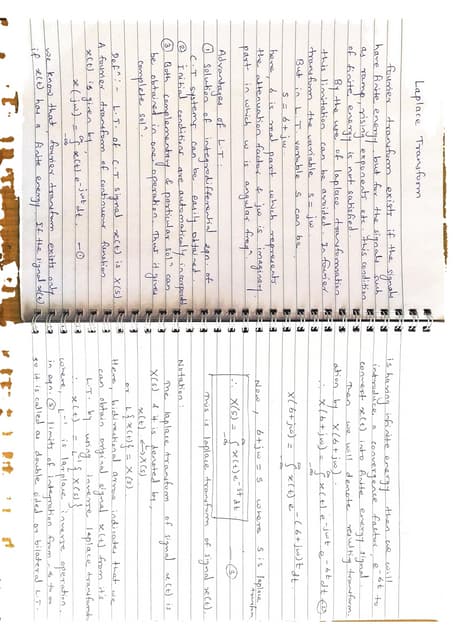 Laplace Transform
Fourier transform exists if the signals
have finite energy but for the signals such
as ramp, rising exponents etc this condition
of finite energy is not satisfied.
By the use of laplace transformation
this limitation can be avoided. In fourier
transform the variable s = jω.
But in L.T variable s can be.
s = 6+jω
here, 6 is real part which represents
the attenuation factor & jω is imaginary
part in which ω is angular freqⁿ.
Advantages of L.T.
① Solution of integrodifferential eqn. of
C.T system can be easily obtained
② initial conditions are automatically incorporated
③ Both complementary & particular solⁿ can
be obtained in one operation. Thus it gives
complete solⁿ.
Defⁿ :- L.T of C.T signal x(t) is X(s)
A fourier transform of continuous function
x(t) is given by
x(jω) = ∫ x(t) e^-jωt dt —①
we know that, fourier transform exists only
if x(t) has a finite energy. If the signal x(t)
is having infinite energy then we will
introduce a convergence factor, e^-6t to
convert x(t) into finite energy signal
Then we will denote resulting transform
ation by X(6+jω)
∴ x(6+jω) = ∫ x(t) e^-jωt e^-6t dt —②
X(6+jω) = ∫ x(t) e^-(6+jω)t dt
Now, 6+jω = s where s is laplace
transform
∴ X(s) = ∫ x(t) e^-st dt —③
This is laplace transform of signal x(t).
Notation
The laplace transform of signal x(t) is
X(s) & it is denoted by,
x(t) ↔ X(s)
or L{x(t)} = X(s)
Here, bidirectional arrow indicates that we
can obtain original signal x(t) from its
L.T. by using inverse laplace transform
∴ x(t) = L⁻¹{X(s)}
where, L⁻¹ is laplace inverse operation.
in eqn. ③ limits of integration from -∞ to ∞
so it is called as double sided or bilateral L.T.